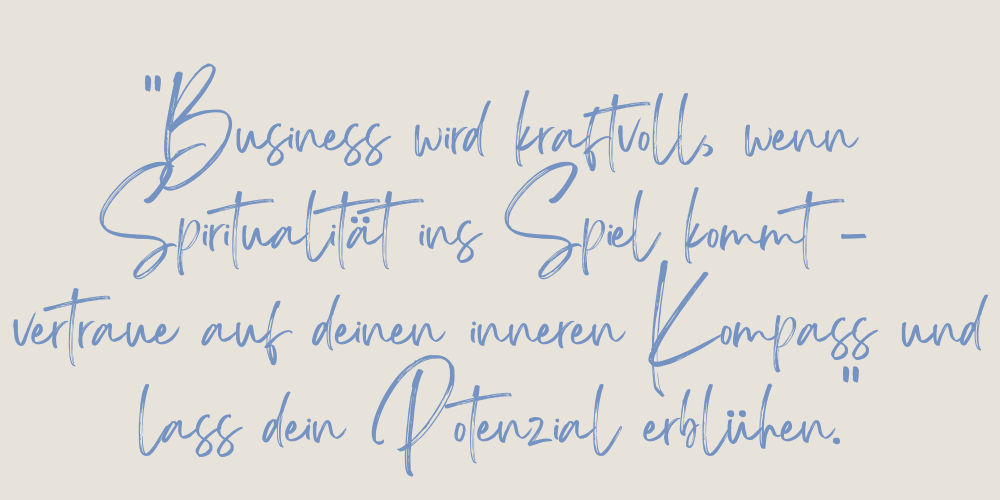 "Business wird kraftvoll, wenn
Spiritualität ins Spiel kommt -
vertraue auf deinen inneren Kompass und
lass dein Potenzial erblühen."